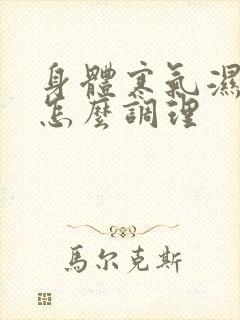 身體寒氣濕
怎麼調理
馬尔克斯